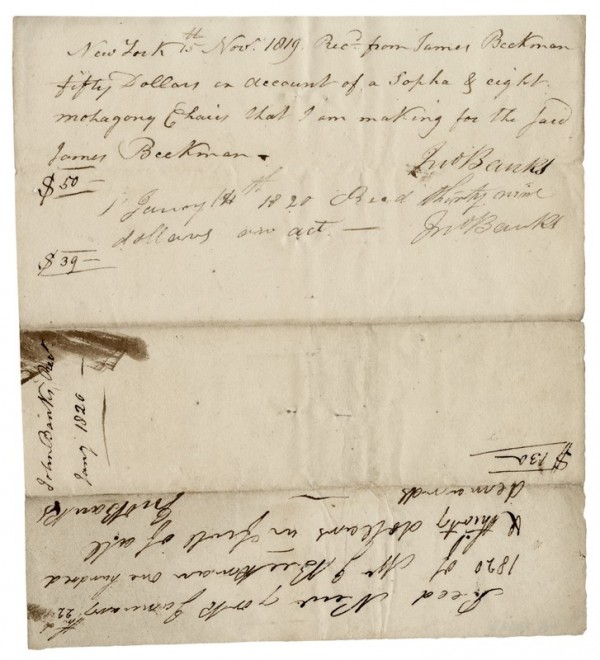 New York 15th Novr. 1819. Recd. from James Beekman
fifty Dollars on account of a Sopha & eight
mohagony Chairs that I am making for the said
James Beekman.
Jno Banks
$ 50 —
Janay 14th 1820 Recd thirty nine
dollars on act. — Jno Banks
$ 39 —
John Banks Rect
Jany 1820
Recd New york January 22nd
1820 of Mr J Beekman one hundred
& thirty dollars in full of all
demands Jno Banks
$ 130